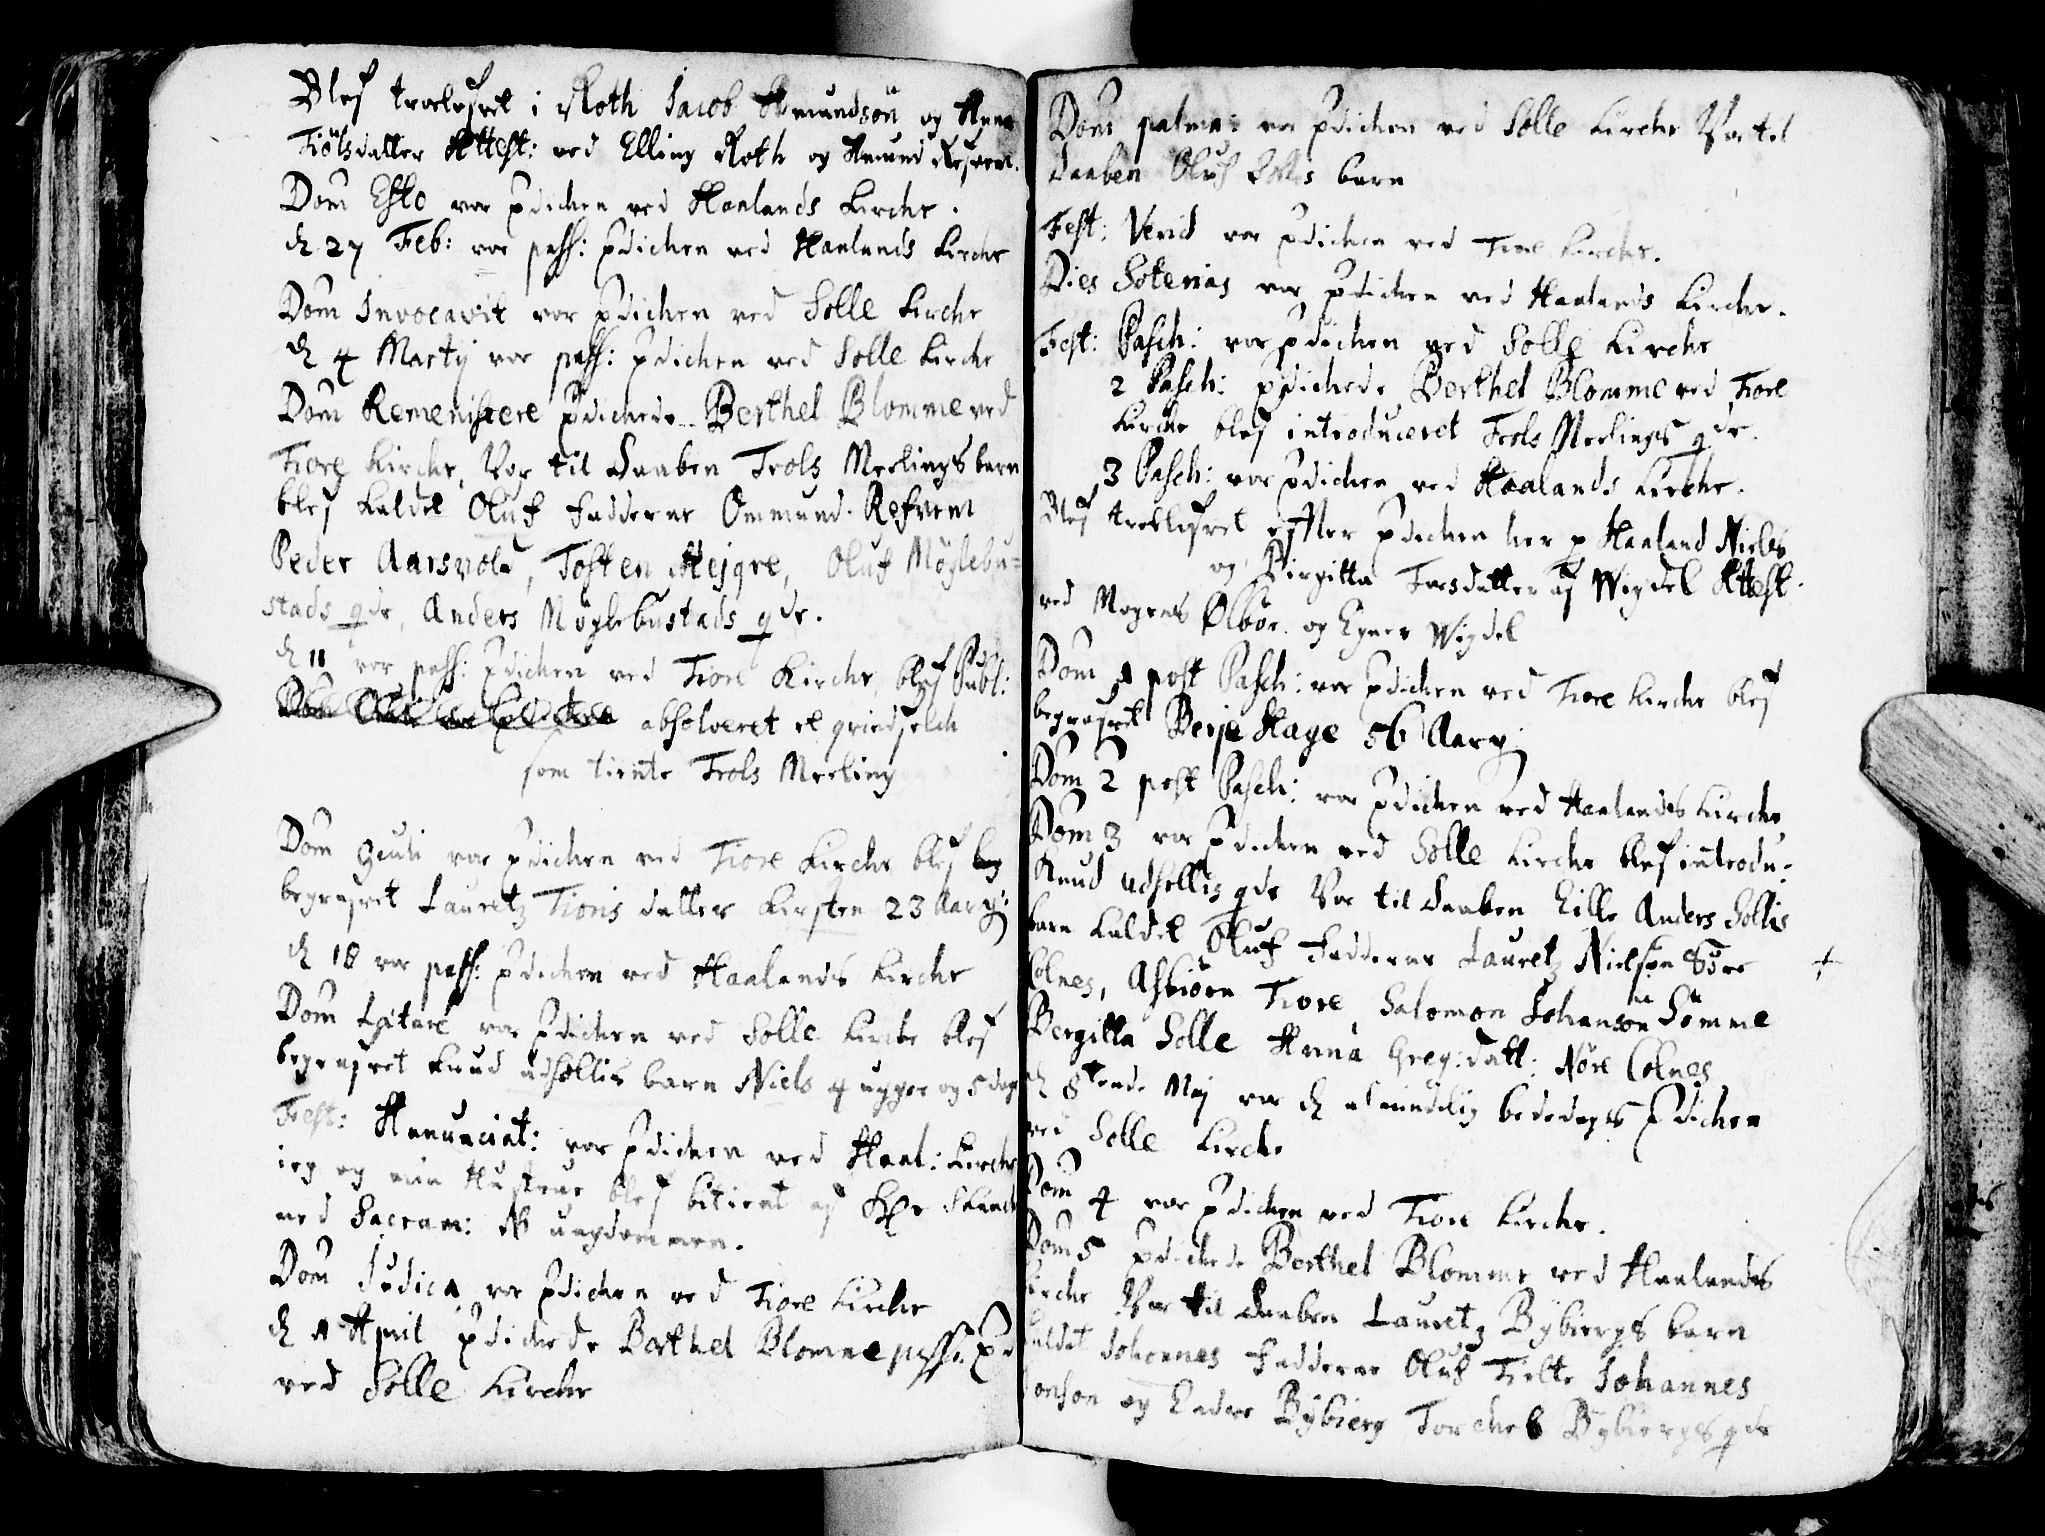 Blef trolofvet i Roth Jacob Amundsön og Anna
Tiölsdatter Attest: ved Elling Roth og Amund Refvem.
Dom Esto var Prdichen ved Haalands Kirche.
d 27 Feb: var pass: Prdichen ved Haalands Kirche
Dom Invocavit var Prdichen ved Solle Kirche
d 4 Martij var pass: Prdichen ved Solle Kirche
Dom Remeniscere Prdichede Berthel Blomme ved
Tiore Kirche, Var til Daaben Trols Meelings barn
blef kaldet Oluf Fadderne Ommund Refvem
Peder Aarsvold, Tosten Mejgre, Oluf Möglebu-
stads qde, Anders Möglebustads qde.
d 11 var pass: Prdichen ved Tiore Kirche, blef Publ:
absolveret et qvindfolch
som tiente Trols Meeling
Dom Oculi var Prdichen ved Tiore Kirche blef
begrafvet Lauretz Tioris datter Kirsten 23 Aar
d 18 var pass: Prdichen ved Haalands Kirche
Dom Lætare var Prdichen ved Solle Kirche blef
begrafvet Knud udsollis barn Niels 4 ugger og 5 dage
Fest: Annunciat: var Prdichen ved Haal: Kirche
ieg og min Hustrue blef betient af Hr
med Sacram: NB ungdommen.
Dom Judica var Prdichen ved Tiore Kirche
d 1 April Prdichede Berthel Blomme pass: Prd
ved Solle Kirche
Dom palma: var Prdichen ved Solle Kirche Var til
Daaben Oluf Solles barn
Fest: Virid var Prdichen ved Tiore Kirche.
Dies Soterias var Prdichen ved Haalands Kirche.
Fest: Pasch: var Prdichen ved Solle Kirche
2 Pasch: Prdichede Berthel Blomme ved Tiore
Kirche blef introduceret Trols Meelings qde.
3 Pasch: var Prdichen ved Haalands Kirche.
Blef trolofvet effter Prdichen her p Haaland Niels
og Birgitta Torsdatter af Wigdel Attest:
ved Mogens Ölbör og Egner Wigdel
Dom 1 post Pasch: var Prdichen ved Tiore Kirche blef
begrafvet Berje Hage 56 Aar
Dom 2 post Pasch: var Prdichen ved Haalands Kirche
Dom 3 var Prdichen ved Solle Kirche blef introdu:
Knud udsollis qde Var til Daaben Lille Anders Sollis
barn kaldet Oluf Fadderne Lauretz Nielsøn Söre
Colnes, Asbiörn Tiore Salomon Johansön Sömme
Bergitta Solle Anna Greg: datt: Nöre Colnes
d 8tende Maj var d almindelig bededags Prdichen
ved Solle Kirche
Dom 4 var Prdichen ved Tiore Kirche.
Dom 5 Prdichede Berthel Blomme ved Haalands
Kirche Var til Daaben Lauretz Bybiergs barn
kaldet Johannes Fadderne Oluf Tielte Johannes
Jonson og Endre Bybierg Torchel Bybiergs qde